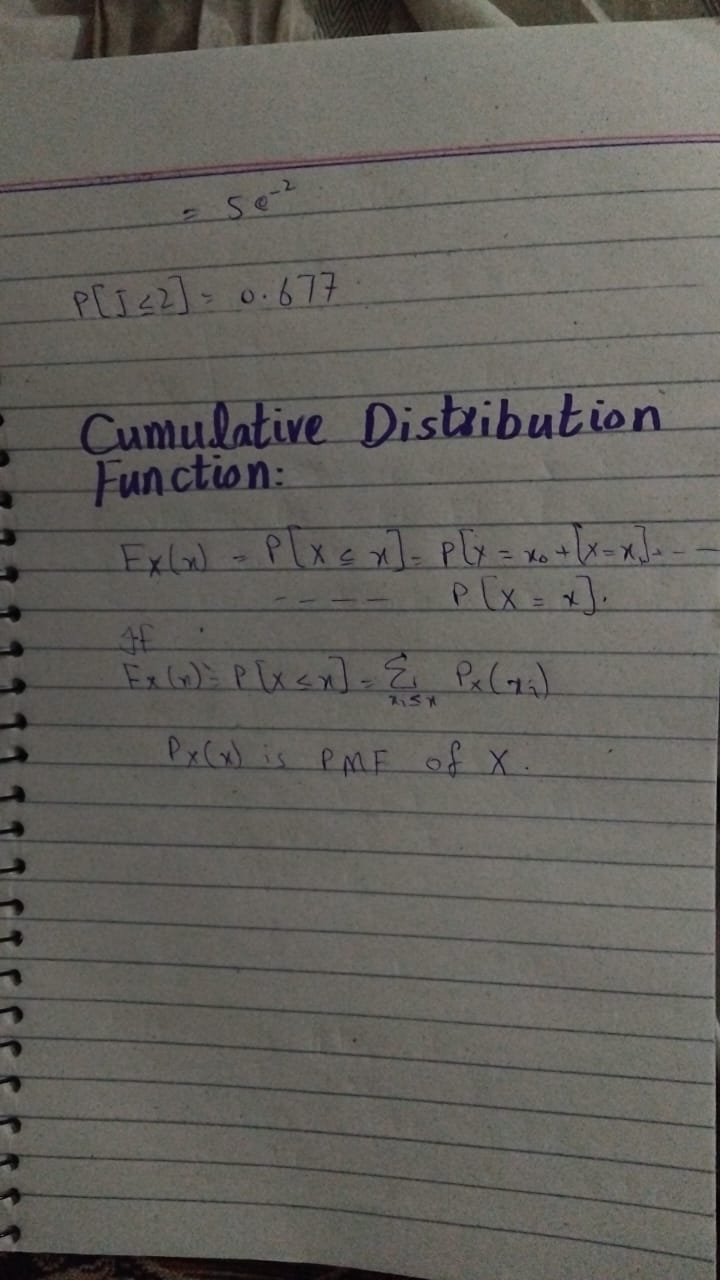 = 5e⁻²
P[J≤2] = 0.677
Cumulative Distribution
Function:
Fx(x) = P[X ≤ x] = P[X = x₀ + [X=x] + - - -
- - - - P[X = x].
If
Fx(x) = P[X ≤ x] = Σ xᵢ≤x Px(xᵢ)
Px(x) is PMF of X.